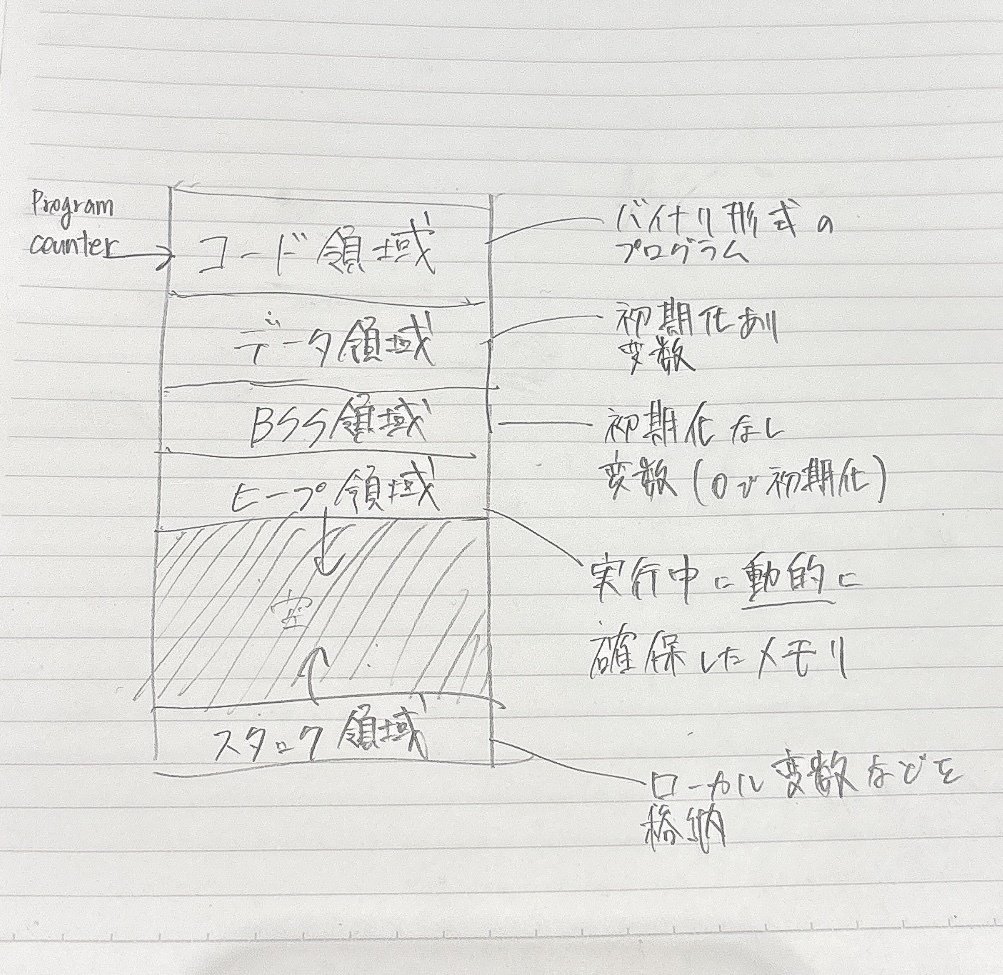 Program
counter
コード領域
バイナリ形式の
プログラム
データ領域
初期化あり
変数
BSS領域
初期化なし
変数(0で初期化)
ヒープ領域
実行中に動的に
確保したメモリ
空
スタック領域
ローカル変数などを
格納